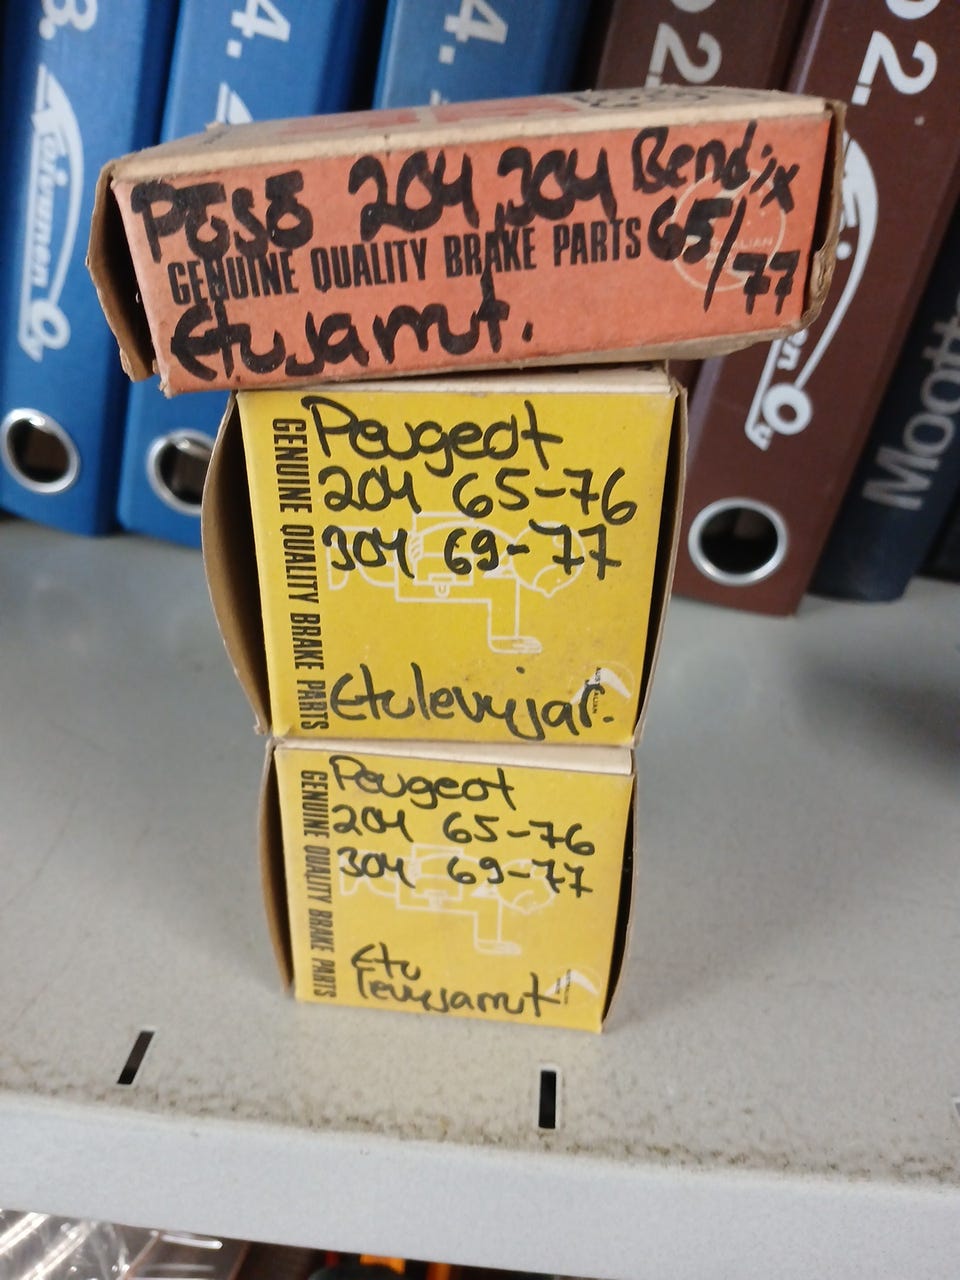 3.
4.
4.
2.
2.
Koivunen Oy
Pösö 204, 304 Bendix
65/77
GENUINE QUALITY BRAKE PARTS
Etujarrut.
Peugeot
204 65-76
304 69-77
GENUINE QUALITY BRAKE PARTS
Etulevyjar.
AUSTRALIAN
Peugeot
204 65-76
304 69-77
GENUINE QUALITY BRAKE PARTS
Etu
levyjarrut